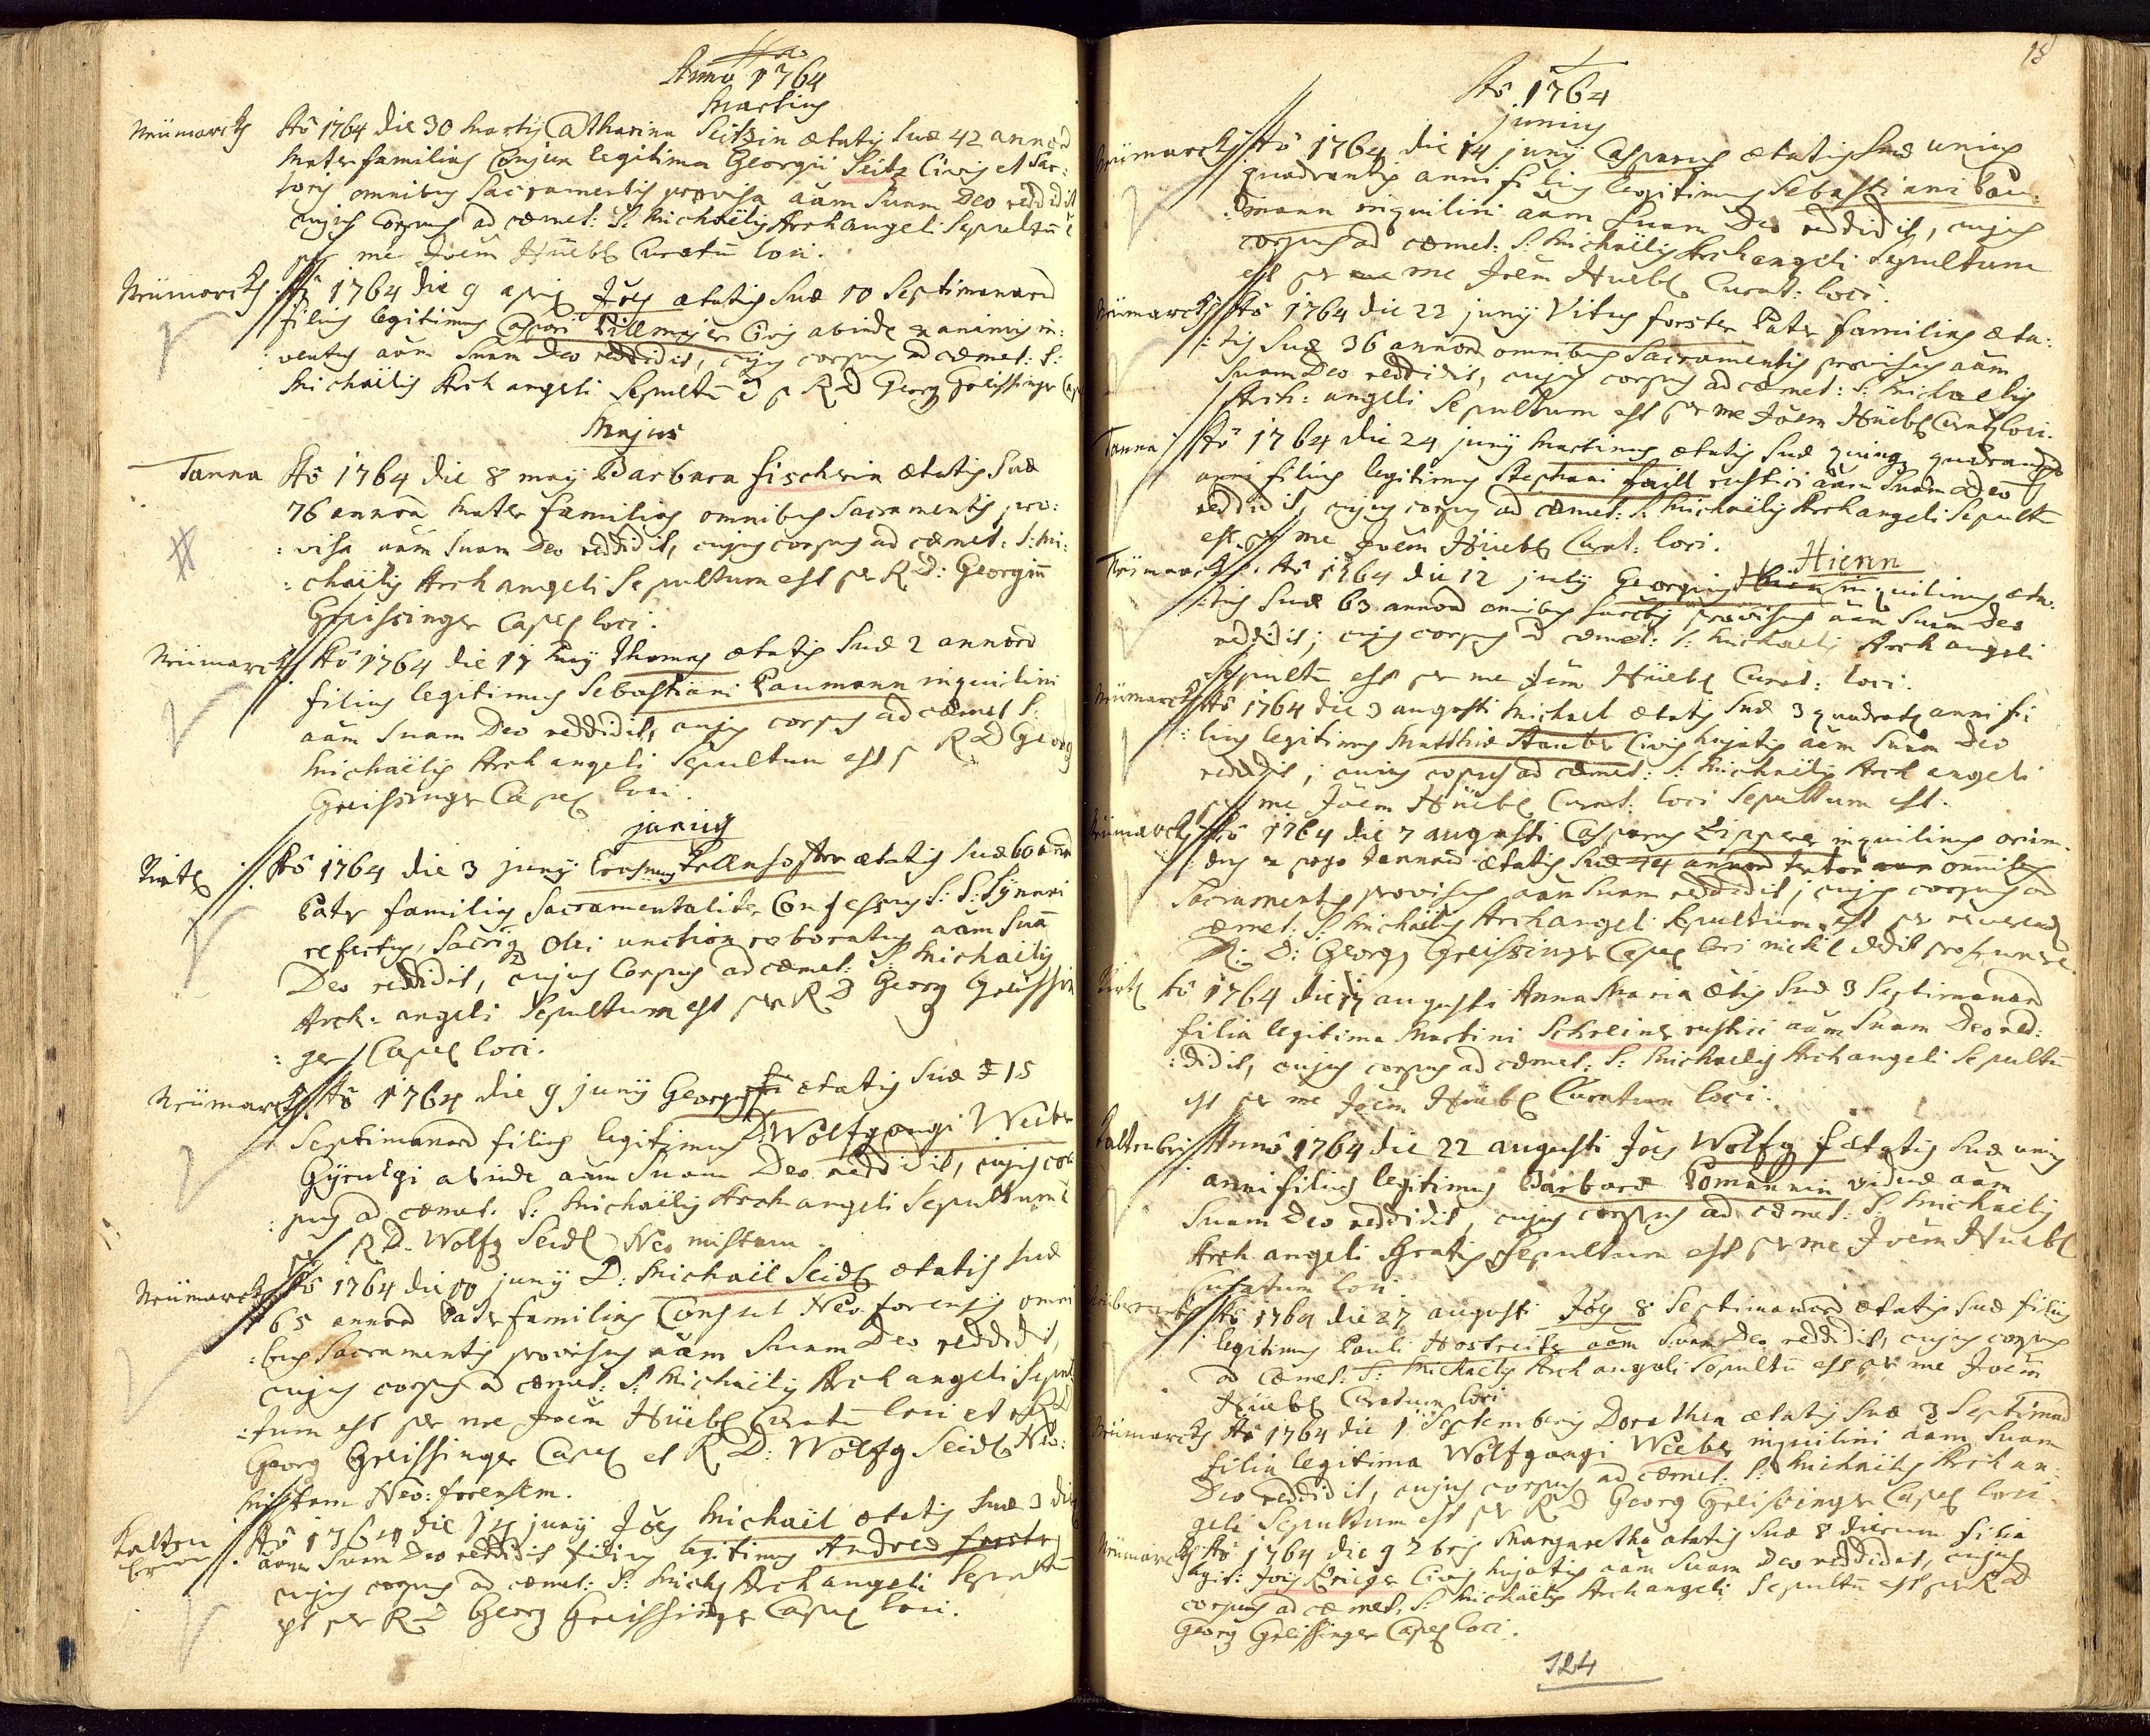 Anno 1764
Martius
Neümarckh Aõ 1764 die 30 Martij Catharina Seitzin ætatis suæ 42 annorū
Mater familias Conjux legitima Georgii Seitz Civis et Sar:
toris omnibus Sacramentis provisa aãm suam Deo reddidit
cujus Corpus ad cœmet: S: Michaëlis Archangeli Sepultū ē
per me Joẽm Hüebl Curatū loci.
Neümarckh Aõ 1764 die 9 apris Jões ætatis suæ 10 Septimanarū
filius legitimus Caspari Pillmajer Civis abinde exanimis in:
ventus aãm suam Deo reddidit, cujus corpus ad cœmet: S:
Michaëlis Archangeli Sepultū ē p R D Georg Greissinger Cap
Majus
Tanna Aõ 1764 die 8 maij Barbara fischerin ætatis suæ
76 annorū Mater familias omnibus Sacramentis pro:
:visa aãm suam Deo reddidit, cujus corpus ad cœmet: S: Mi:
:chaëlis Archangeli Sepultum est per R D: Georgiū
Greissinger Capel loci.
Neümarckh Aõ 1764 die 17 Maij Thomas ætatis suæ 2 annorū
filius legitimus Sebastiani Paumann inquilini
aãm suam Deo reddidit, cujus corpus ad cœmet S:
Michaëlis Archangeli Sepultum est p R D Georg
Greissinger Capel loci.
junius
Aõ 1764 die 3 junij Erasmus ætatis suæ 60 ann
Pater familias Sacramentaliter Confessus S: S: Synaxi
refectus, Sacriq Olei unctione roboratus aãm suã
Deo reddidit, cujus Corpus ad cœmet: S: Michaëlis
Arch: angeli Sepultum est per R D Georg Greissin
:ger Capel loci.
Neümarckh Aõ 1764 die 9 junij Georgius ætatis suæ 15
Septimanarū filius legitimus D: Wolfgangi Weeber
Chyrurgi abinde aãm suam Deo reddidit, cujus cor
:pus ad cœmet: S: Michaëlis Archangeli Sepultum ē
per R D. Wolfg Seidl Neo mistam.
Neümarckh Aõ 1764 die 10 junij D: Michaël Seidl ætatis suæ
65 annorū Pater familias Consul Neo forensis omni
:bus Sacramentis provisus aãm suam Deo reddidit,
cujus corpus ad cœmet: S: Michaëlis Archangeli Sepul
:tum est per me Joẽm Hüebl Curatū loci et R D
Georg Greissinger Capel et R D: Wolfg Seidl Neo:
Mistam Neo: forensem.
Kalten
brun Aõ 1764 die 14 junij Jões Michaël ætatis suæ 3 die
aãm suam Deo reddidit filius legitimus Andreæ forster
cujus corpus ad cœmet: S: Mich Archangeli Sepultū
est per R D Georg Greissinger Capel loci.
18
Aõ 1764
junius
Neümarckh Aõ 1764 die 14 junij Casparus ætatis suæ unius
quadrantis anni filius legitimus Sebastiani Pau
:mann inquilini aãm suam Deo reddidit, cujus
corpus ad cœmet: S: Michaëlis Archangeli Sepultum
est per me Joẽm Hüebl Curat: loci.
Neümarckh Aõ 1764 die 22 junij Vitus forster Pater familias æta:
:tis suæ 36 annorū omnibus Sacramentis provisus aãm
suam Deo reddidit, cujus corpus ad cœmet: S: Michaelis
Arch: angeli Sepultum est per me Joẽm Hüebl Curat loci.
Tanna Aõ 1764 die 24 junij Martinus ætatis suæ quinq quadrant
anni filius legitimus Stephani faill rustici aãm suam Deo
reddidit, cujus corpus ad cœmet: S: Michaëlis Archangeli Sepultū
est per me Joẽm Hüebl Curat: loci. Hienn
Neümarckh Aõ 1764 die 12 julij Georgius inquilinus æta:
:tis suæ 63 annorū omnibus provisus aãm suam Deo
reddidit; cujus corpus ad cœmet: S: Michaelis Archangeli
Sepultū est per me Joẽm Hüebl Curat: loci.
Neümarckh Aõ 1764 die 3 augusti Michael ætatis suæ 3 quadrat anni fi
:lius legitimus Matthiæ Stauber Civis hujatis aãm suam Deo
reddidit; cujus copus ad cœmet: S: Michaëlis Archangeli
per me Joẽm Hüebl Curat: loci Sepultum est.
Neümarckh Aõ 1764 die 7 augusti Casparus Zipperer inquilinus oriun:
:dus ex pago ætatis suæ 44 annorū omnibus
Sacramentis provisus aãm suam reddidit; cujus corpus ad
cœmet: S: Michaëlis Archangeli Sepultum est per reverend
R: D: Georg Greissinger Capel loci nichil dedit pro funere.
Aõ 1764 die 17 augusti Anna Maria ætis suæ 3 Septimanarū
filia legitima Martini Schreiner rustici aãm suam Deo red:
:didit, cujus corpus ad cœmet: S: Michaelis Archangeli Sepultū
est per me Joẽm Hüebl Curatum loci.
Kaltenbrun Annõ 1764 die 22 augusti Jões Wolfg ætatis suæ unius
anni filius legitimus Barbaræ Pomännin viduæ aãm
suam Deo reddidit, cujus corpus ad cœmet: S: Michaelis
Archangeli Gratis Sepultum est per me Joẽm Hüebl
Curatum loci
Aõ 1764 die 27 augusti Jões 8 Septimanarū ætatis suæ filius
legitimus Pauli Hostreiter aãm suam Deo reddidit, cujus corpus
ad Cœmet: S: Michaelis Archangeli Sepultū est per me Joẽm
Hüebl Curatum loci
Neümarckh Aõ 1764 die 1 Septembris Dorothea ætatis suæ 3 Septimarū
filia legitima Wolfgangi Weeber inquilini aãm suam
Deo reddidit, cujus corpus ad cœmet: S: Michaëlis Archan:
geli Sepultum est per R D Georg Greissinger Capel loci.
Neümarckh Aõ 1764 die 9 7bris Margaretha ætatis suæ 8 dierum filia
legit: Jõis Krieger Civis hujatis aãm suam Deo reddidit, cujus
corpus ad cœmet: S: Michaëlis Archangeli Sepultū est per R D
Georg Greissinger Capel loci.
124